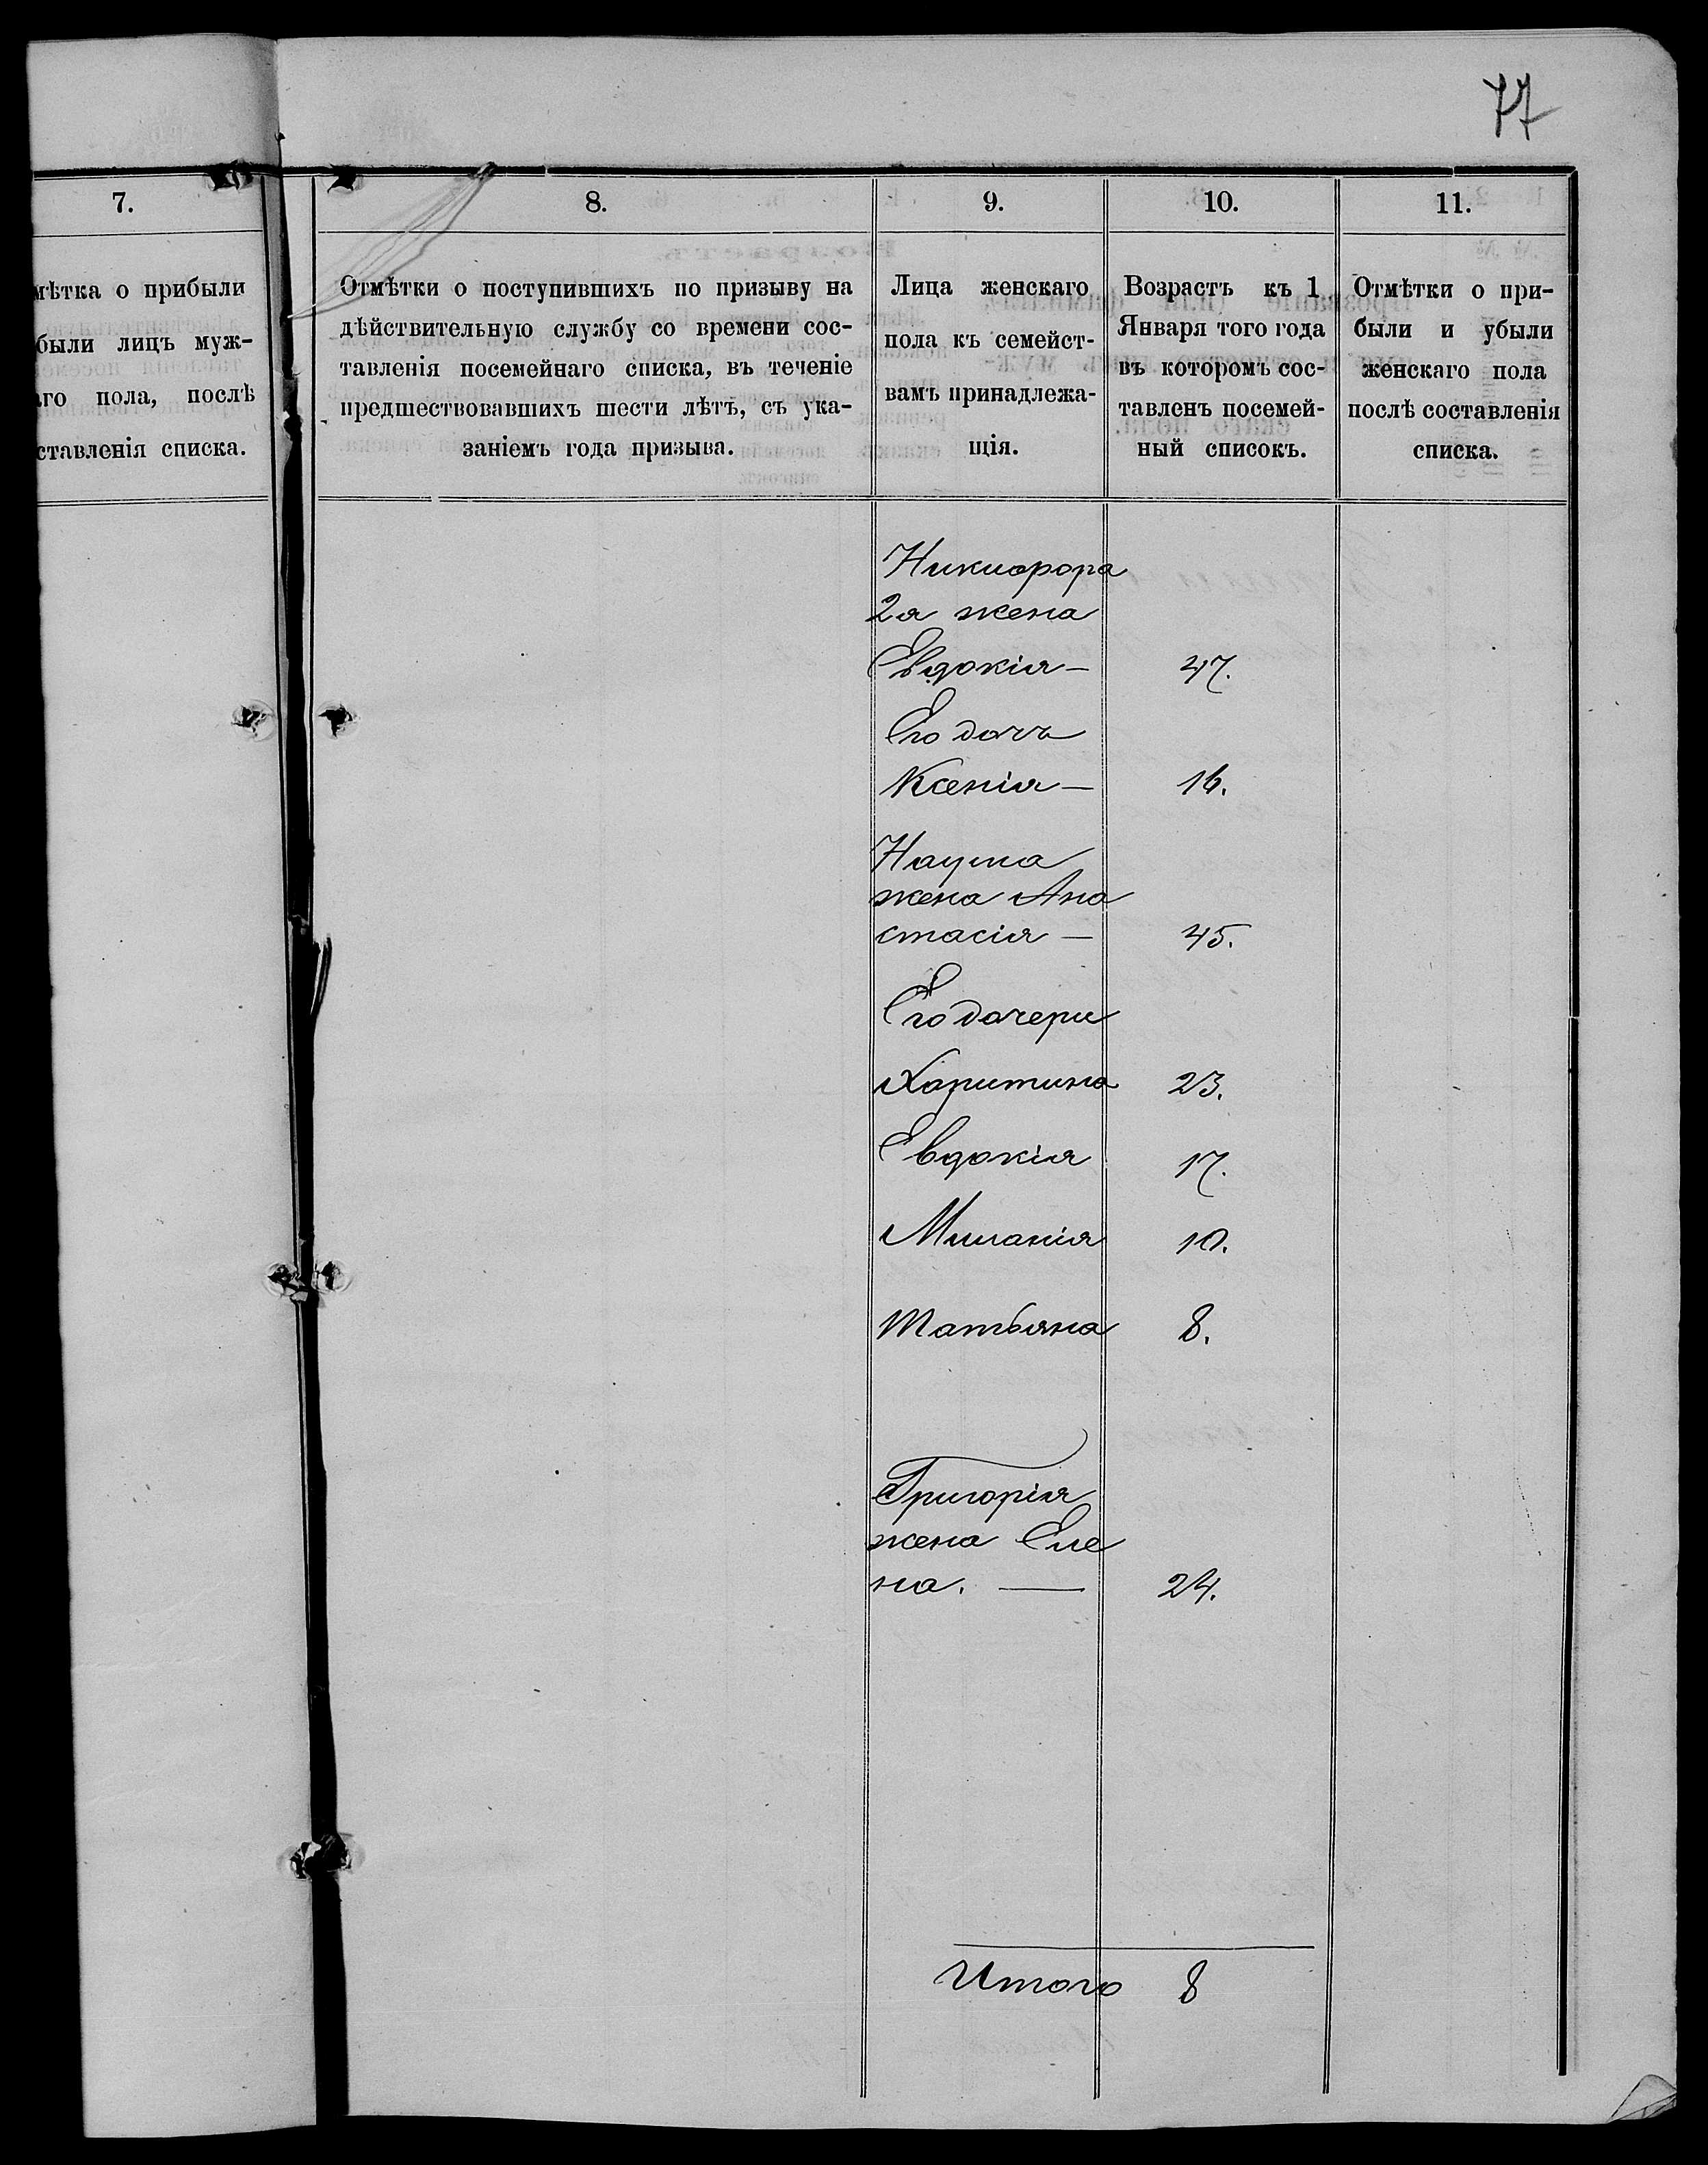 77
7.
8.
9.
10.
11.
мѣтка о прибыли
были лицъ муж-
аго пола, послѣ
ставленія списка.
Отмѣтки о поступившихъ по призыву на
дѣйствительную службу со времени сос-
тавленія посемейнаго списка, въ теченіе
предшествовавшихъ шести лѣтъ, съ ука-
заніемъ года призыва.
Лица женскаго
пола къ семейст-
вамъ принадлежа-
щія.
Возрастъ къ 1
Января того года
въ которомъ сос-
тавленъ посемей-
ный списокъ.
Отмѣтки о при-
были и убыли
женскаго пола
послѣ составленія
списка.
Никифора
2я жена
Евдокія — 47.
Его дочь
Ксенія — 16.
Наума
жена Ана
стасія — 45.
Его дочери
Харитина 23.
Евдокія 17.
Миланія 10.
Татьяна 8.
Григорія
жена Еле
на. — 24.
Итого 8